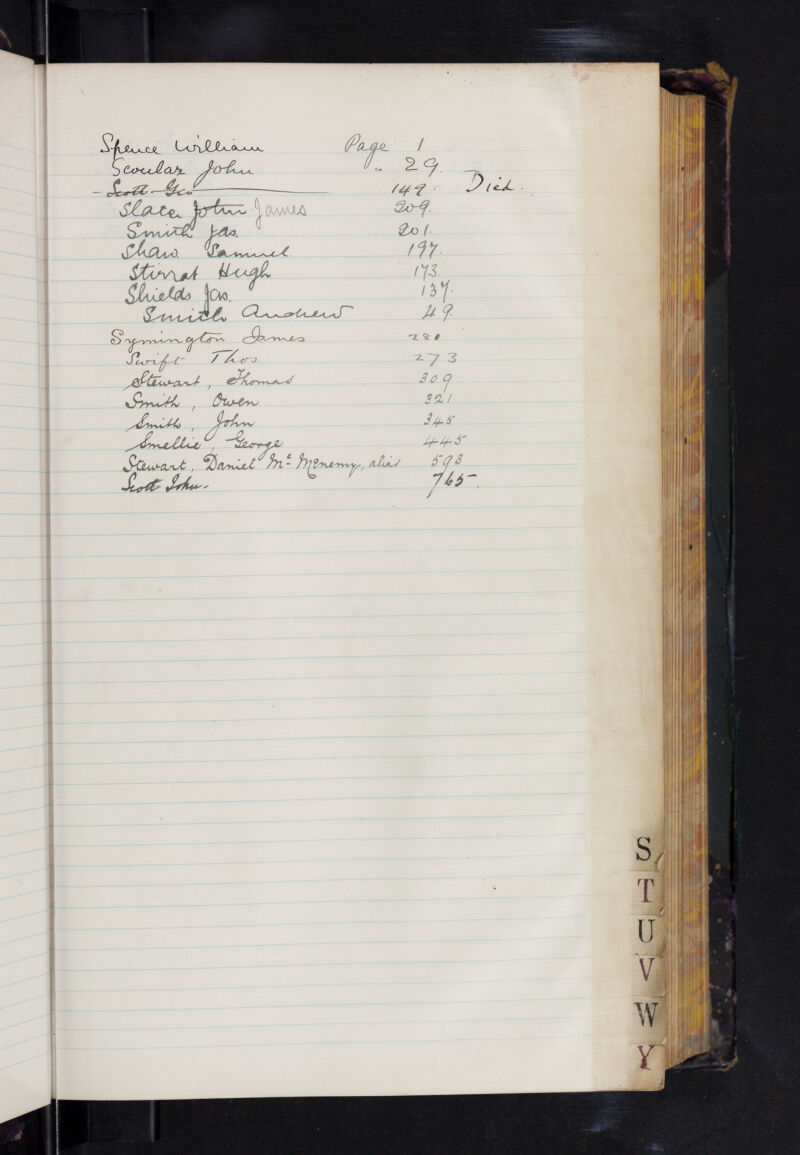 Spence William Page 1
Scoular John " 29.
Scott Geo 149. Died.
Slater John James 209.
Smith Jas. 201.
Shaw Samuel 197.
Stirrat Hugh 173.
Shields Jas. 137.
Smith Andrew 49.
Symington James 281
Swift Thos. 273
Stewart, Thomas 309
Smith, Owen 321
Smith, John 345
Smellie, George 445
Stewart, Daniel Mc Menemy, alias 593
Scott John. 765.
S
T
U
V
W
Y